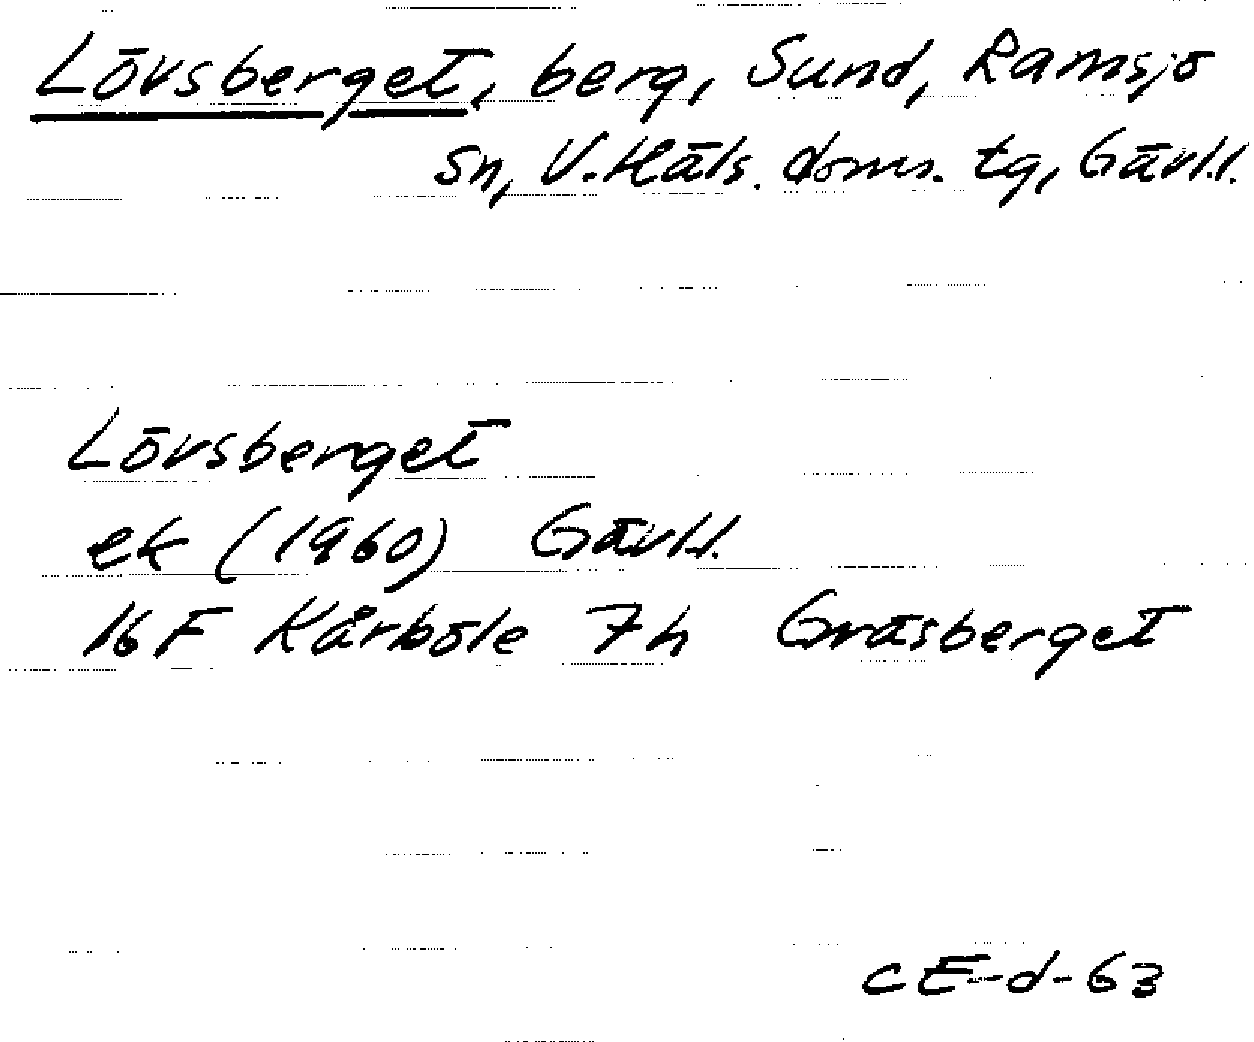 Lövsberget, berg, Sund, Ramsjö
sn, V. Häls. doms. tg, Gävl.l.
Lövsberget
ek (1960) Gävl.l.
16 F Kårböle 7h Gräsberget
CE-d-63